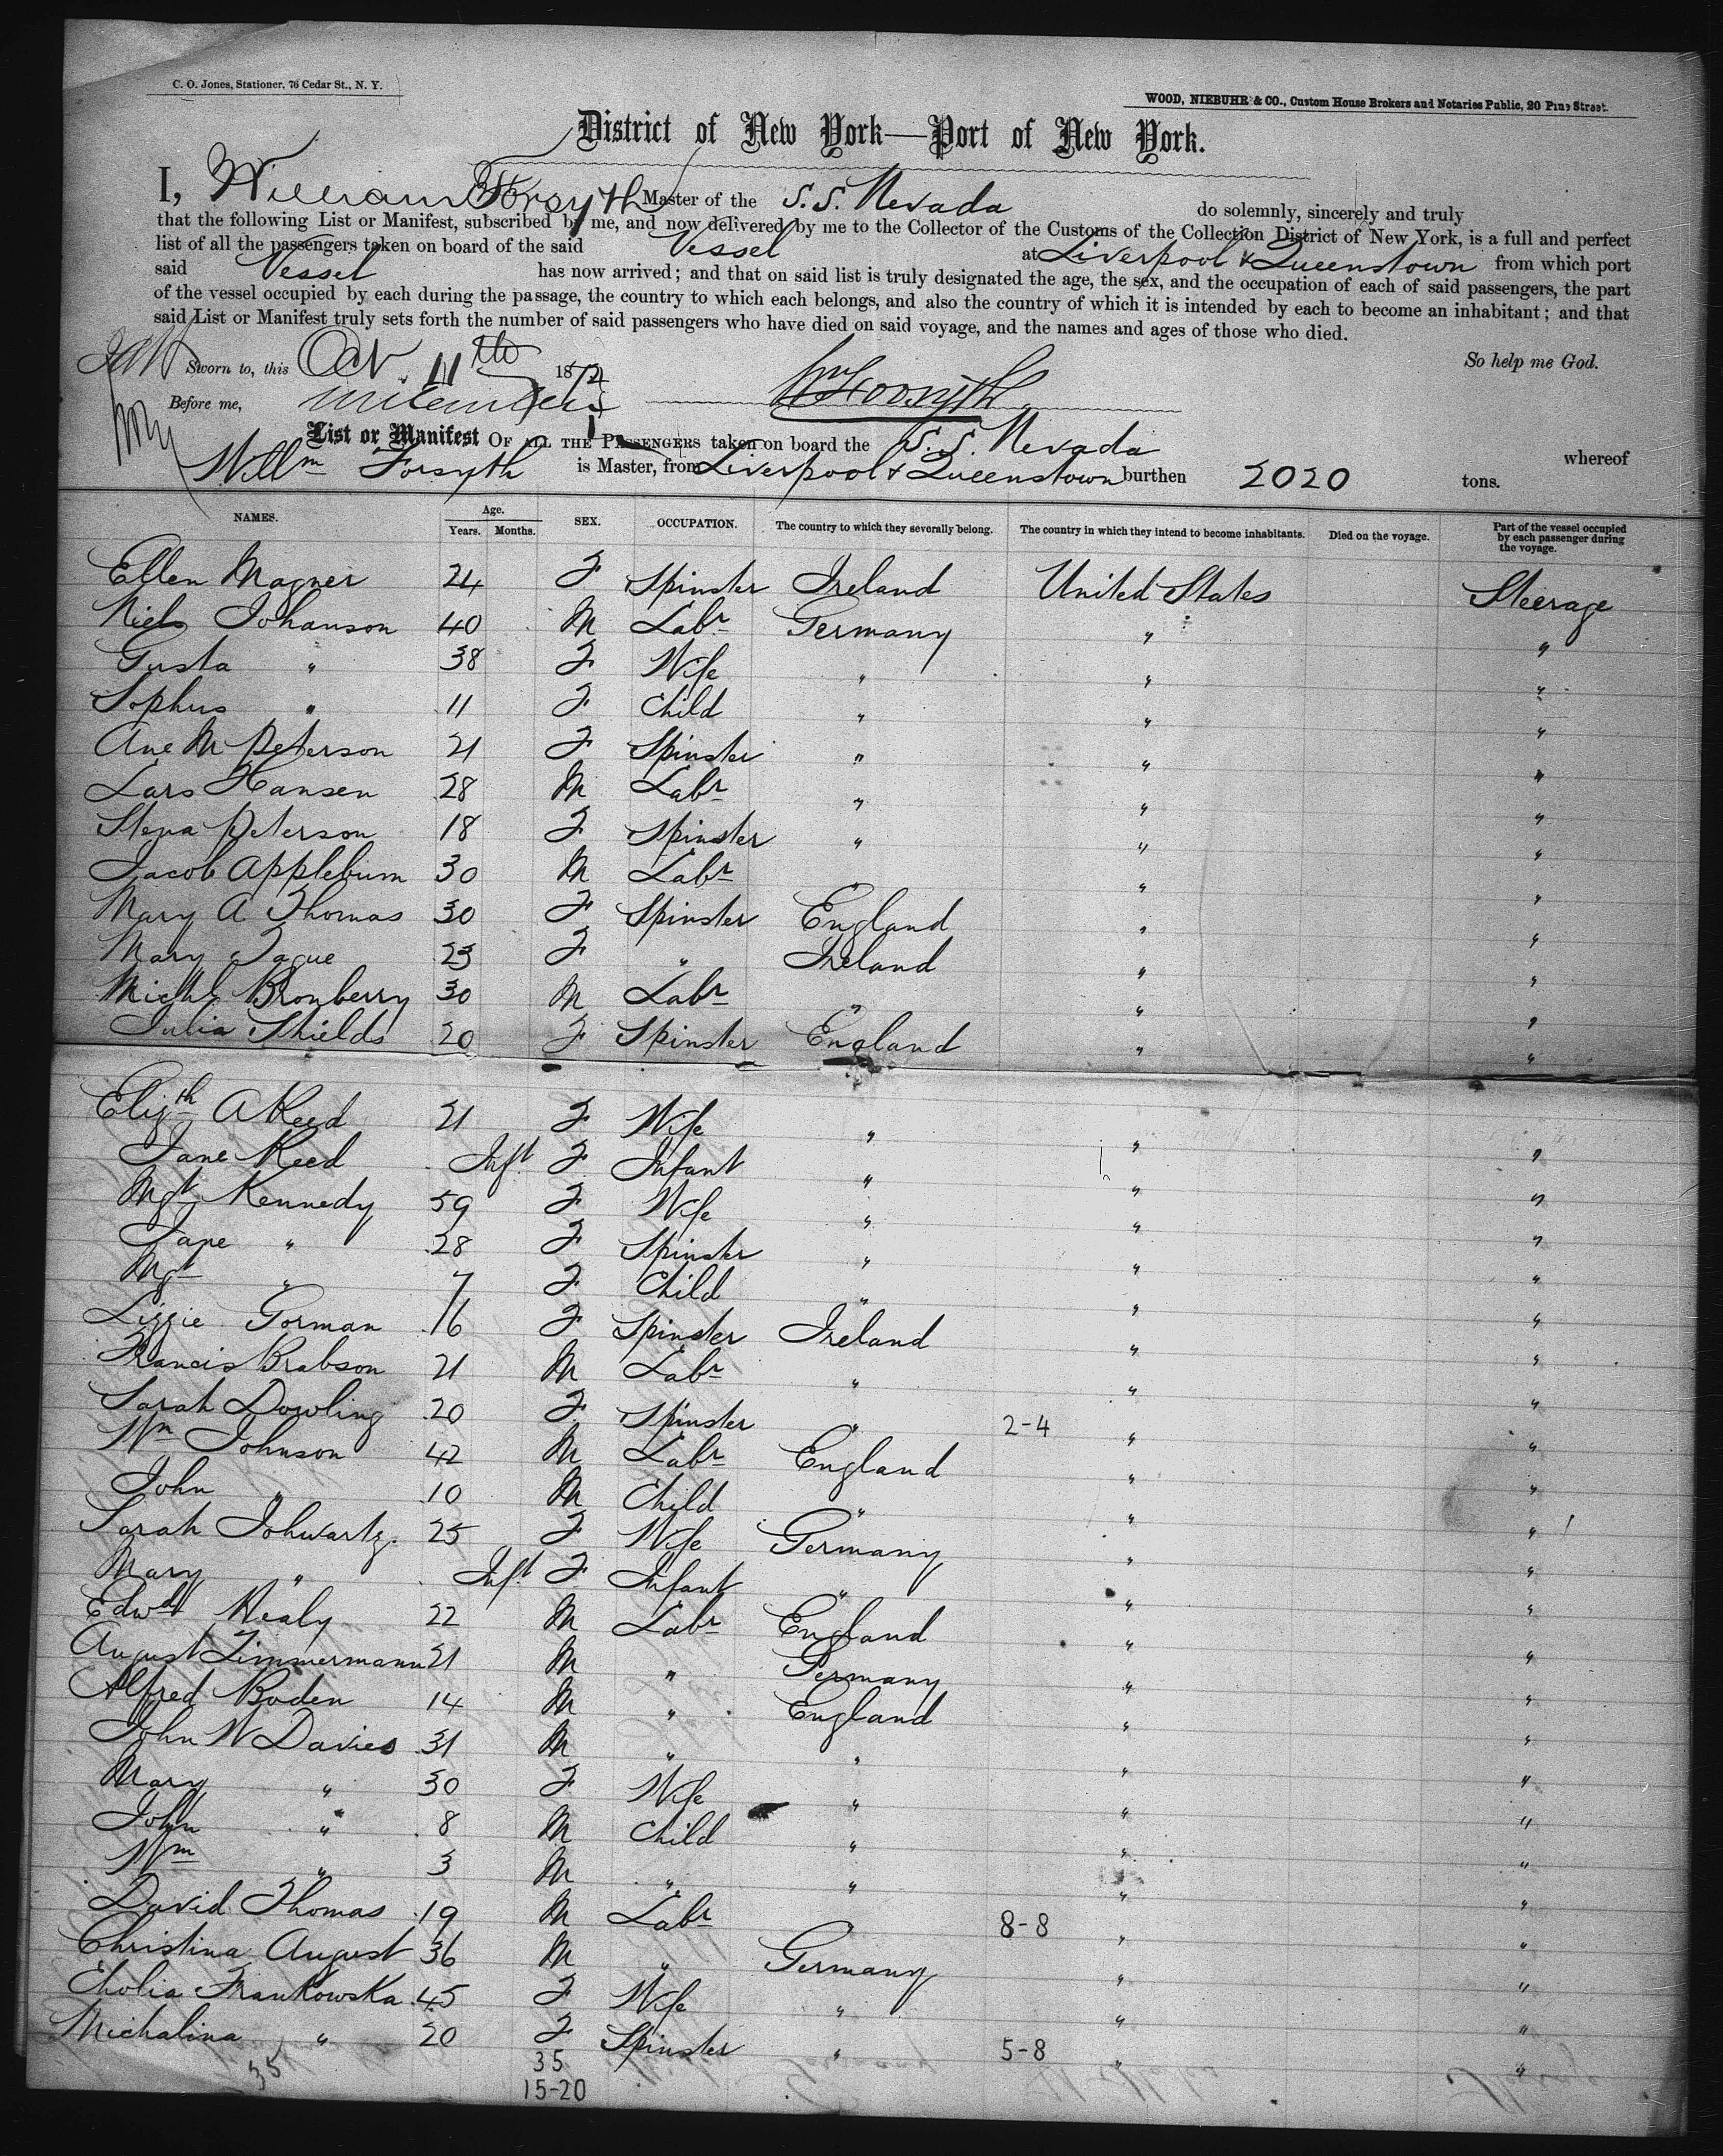 C. O. Jones, Stationer, 76 Cedar St., N. Y.
WOOD, NIEBUHR & CO., Custom House Brokers and Notaries Public, 20 Pine Street.
District of New York—Port of New York.
I, William Forsyth Master of the S.S. Nevada do solemnly, sincerely and truly
that the following List or Manifest, subscribed by me, and now delivered by me to the Collector of the Customs of the Collection District of New York, is a full and perfect
list of all the passengers taken on board of the said Vessel at Liverpool & Queenstown from which port
said Vessel has now arrived; and that on said list is truly designated the age, the sex, and the occupation of each of said passengers, the part
of the vessel occupied by each during the passage, the country to which each belongs, and also the country of which it is intended by each to become an inhabitant; and that
said List or Manifest truly sets forth the number of said passengers who have died on said voyage, and the names and ages of those who died.
So help me God.
Sworn to, this Oct 11th 187
Before me,
Wm Forsyth
List or Manifest OF ALL THE PASSENGERS taken on board the S.S. Nevada whereof
Willm Forsyth is Master, from Liverpool & Queenstown burthen 2020 tons.
NAMES. Age. Years. Months. SEX. OCCUPATION. The country to which they severally belong. The country in which they intend to become inhabitants. Died on the voyage. Part of the vessel occupied by each passenger during the voyage.
Ellen Magner 24 F Spinster Ireland United States Steerage
Niels Johanson 40 M Labr Germany " "
Gusta " 38 F Wife " " "
Sophus " 11 F Child " " "
Ane M Peterson 21 F Spinster " " "
Lars Hansen 28 M Labr " " "
Stena Peterson 18 F Spinster " " "
Jacob Applebum 30 M Labr " " "
Mary A Thomas 30 F Spinster England " "
Mary Tague 23 F " Ireland " "
Michl Bronberry 30 M Labr " " "
Julia Shields 20 F Spinster England " "
Elizth A Reed 21 F Wife " " "
Jane Reed Inft F Infant " " "
Mgt Kennedy 59 F Wife " " "
Jane " 28 F Spinster " " "
Mgt " 7 F Child " " "
Lizzie Gorman 16 F Spinster Ireland " "
Francis Brabson 21 M Labr " " "
Sarah Dowling 20 F Spinster " 2-4 " "
Wm Johnson 42 M Labr England " "
John " 10 M Child " " "
Sarah Johwartz 25 F Wife Germany " "
Mary " Inft F Infant " " "
Edwd Healy 22 M Labr England " "
August Zimmermann 21 M " Germany " "
Alfred Boden 14 M " England " "
John W Davies 31 M " " " "
Mary " 30 F Wife " " "
John " 8 M Child " " "
Wm " 3 M " " " "
David Thomas 19 M Labr " 8-8 " "
Christina August 36 M " Germany " "
Cholia Frankowska 45 F Wife " " "
Michalina " 20 F Spinster " 5-8 " "
35 35
15-20